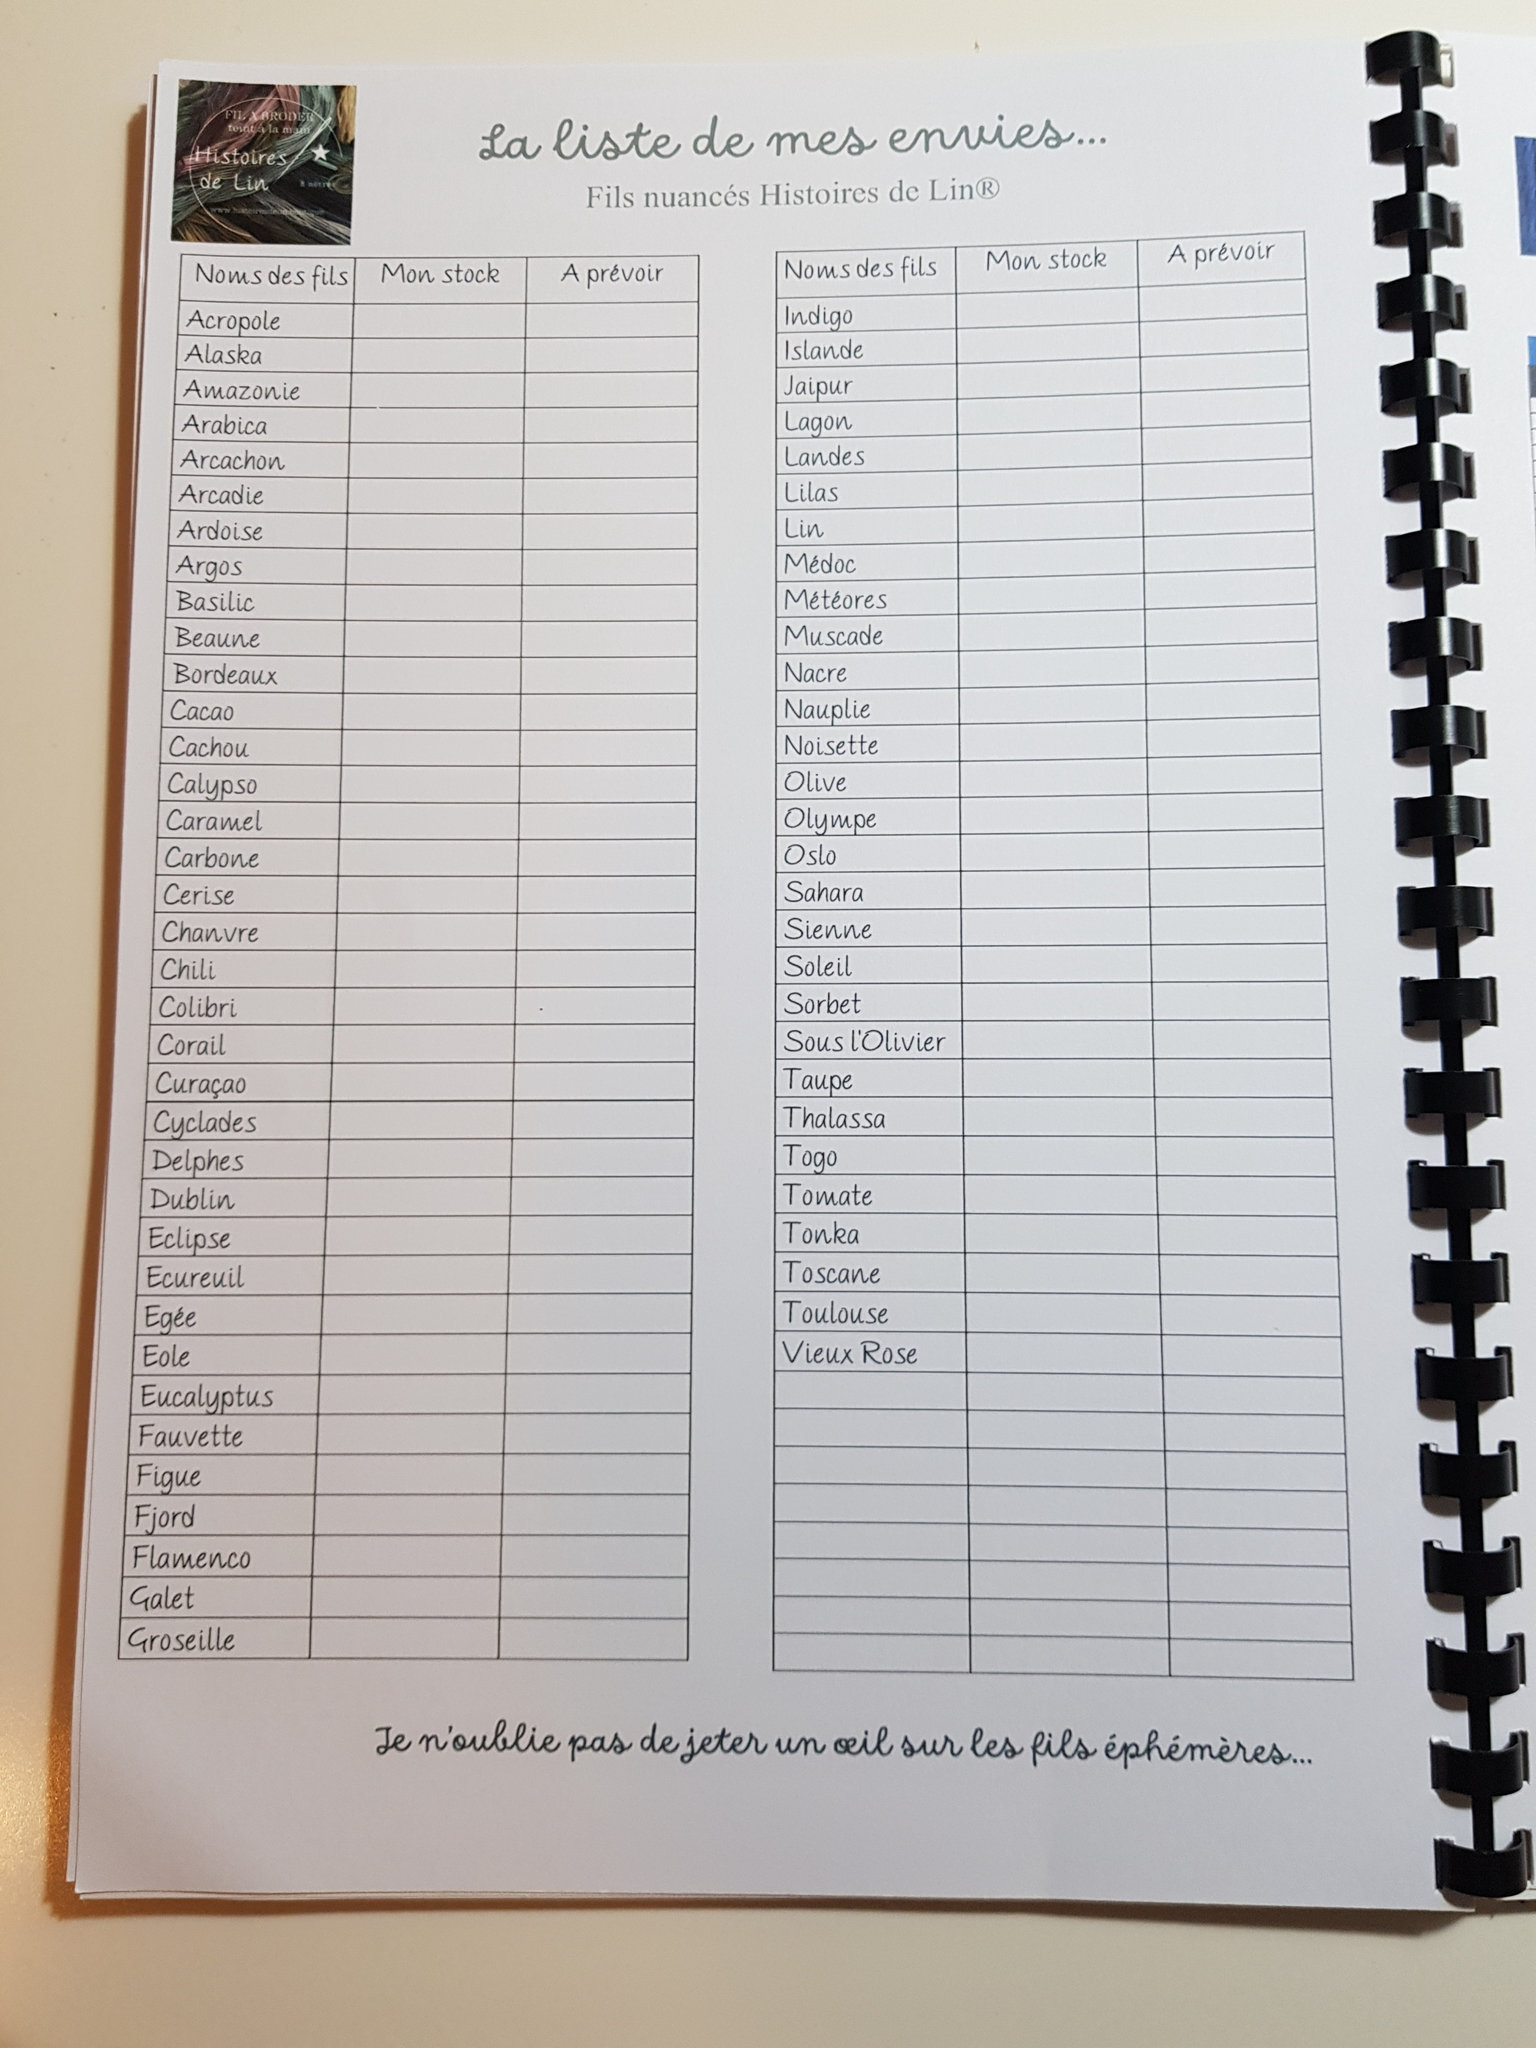 FIL A BRODER
teint à la main
Histoires
de Lin
La liste de mes envies...
Fils nuancés Histoires de Lin®
Noms des fils Mon stock A prévoir
Acropole
Alaska
Amazonie
Arabica
Arcachon
Arcadie
Ardoise
Argos
Basilic
Beaune
Bordeaux
Cacao
Cachou
Calypso
Caramel
Carbone
Cerise
Chanvre
Chili
Colibri
Corail
Curaçao
Cyclades
Delphes
Dublin
Eclipse
Ecureuil
Egée
Eole
Eucalyptus
Fauvette
Figue
Fjord
Flamenco
Galet
Groseille
Noms des fils Mon stock A prévoir
Indigo
Islande
Jaipur
Lagon
Landes
Lilas
Lin
Médoc
Météores
Muscade
Nacre
Nauplie
Noisette
Olive
Olympe
Oslo
Sahara
Sienne
Soleil
Sorbet
Sous l'Olivier
Taupe
Thalassa
Togo
Tomate
Tonka
Toscane
Toulouse
Vieux Rose
Je n'oublie pas de jeter un œil sur les fils éphémères...